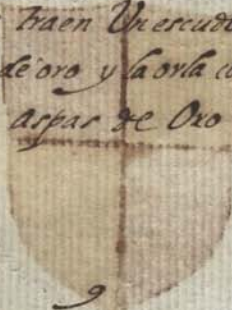 traen Un escud
de oro y la orla c
aspas de Oro
9